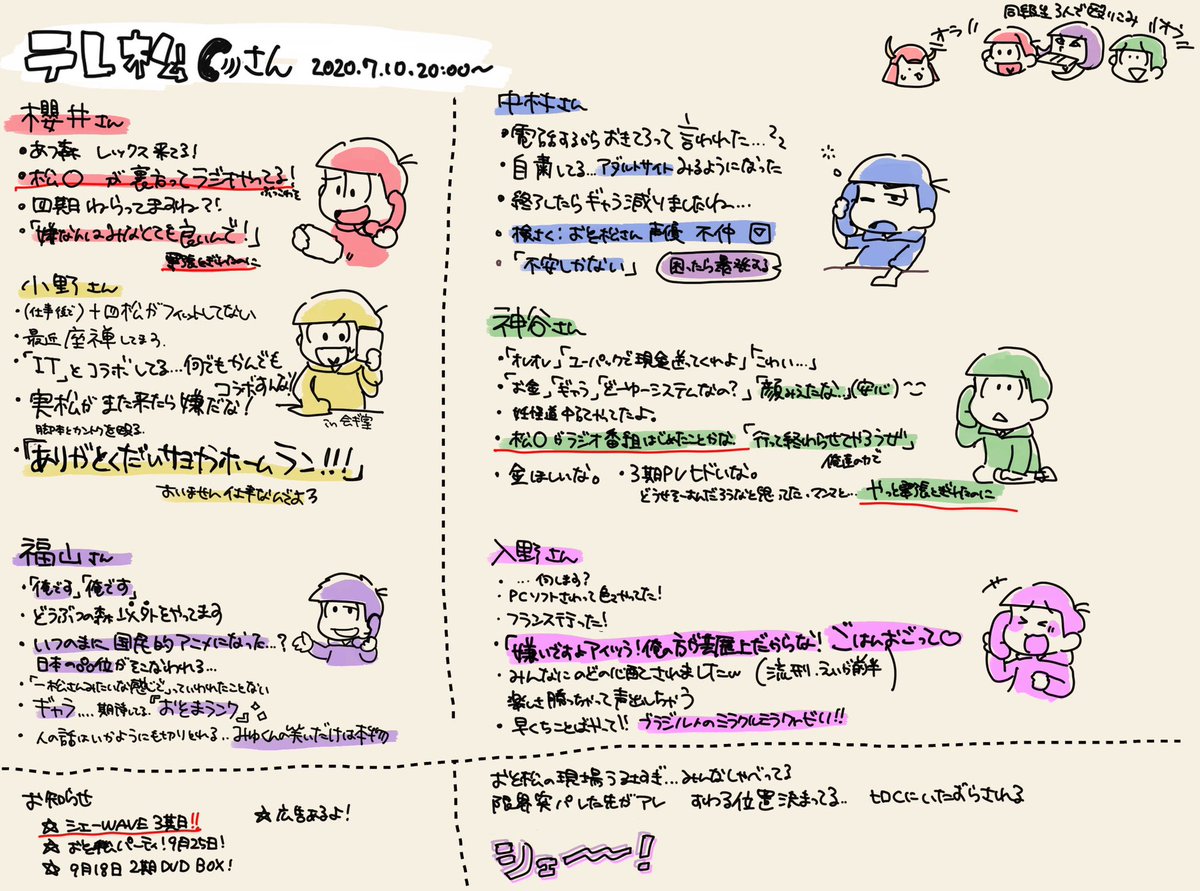 テレ松さん 2020.7.10.20:00〜
同級生3人で殴りこみ
オラ
オラ
櫻井さん
・あつ森 レックス来てる!
・松〇が裏行ってラジオやってる!
・四期ねらってまみね?!
「嫌なんはみなとても言いんで!」
緊張とぎれたのに
小野さん
・(仕事後で)十四松がフィットしてない
・最近座禅してまろ.
・「IT」とコラボしてる…何でもかんでも
コラボすんな!
・実松がまた来たら嫌だな!
脚本とカントクを殴る.
in 会ギ室
・「ありがとくだいサヨナラホームラン!!!」
すいません仕事なんでよろ
福山さん
・「俺です」「俺です」
・どうぶつの森以外をやってます
・いつのまに国民的アニメになった…?
日本の品位がそこなわれる…
・「一松さんみたいな感じで」っていわれたことない
・ギャラ….期待してる.『おとまランク』
・人の話はいかようにも切りとれる…みゆくんの笑いだけは本物
中村さん
・電話するからおきてろって言われた…??
・自粛してる…アダルトサイトみるようになった
・終了したらギャラ減りましたしね…
・検さく:おと松さん 声優 不仲
・「不安しかない」
困ったら最後する
神谷さん
・「オレオレ」「ユーパックで現金送ってくれよ」「こわい…」
・「お金」「ギャラ」「どーゆーシステムなの?」「顔みえたな…」(安心)
・妖怪道中記やんてたよ。
・松〇がラジオ番組はじめたことかな.「行って終わらせてやろうぜ」
俺達の力で
・金ほしいな。
・3期PVヒドいな。
どうせそーすんだろうなと思ってた.マンマと…やっと緊張とぎれたのに
入野さん
・…何します?
・PCソフトさわって色々やってた!
・フランス行った!
・「嫌いですよアイツら!俺の方が芸歴上だからな!ごはんおごって♡
・みんなにのどの心配とされましたw (流刑.えいが前半)
楽しさ勝っちゃって声出しちゃう
・早くちことばやって!! ブラジル人のミラクルミラクルビい!!
お知らせ
☆シェーWAVE 3期目!!
☆広告あるよ!
☆おと松パーティ!9月25日!
☆9月18日 2期DVD BOX!
おと松の現場うるさすぎ…みんなしゃべってる
限界突パした先がアレ すわる位置決まってる.. ヒロCにいたずらされる
シェ〜〜!